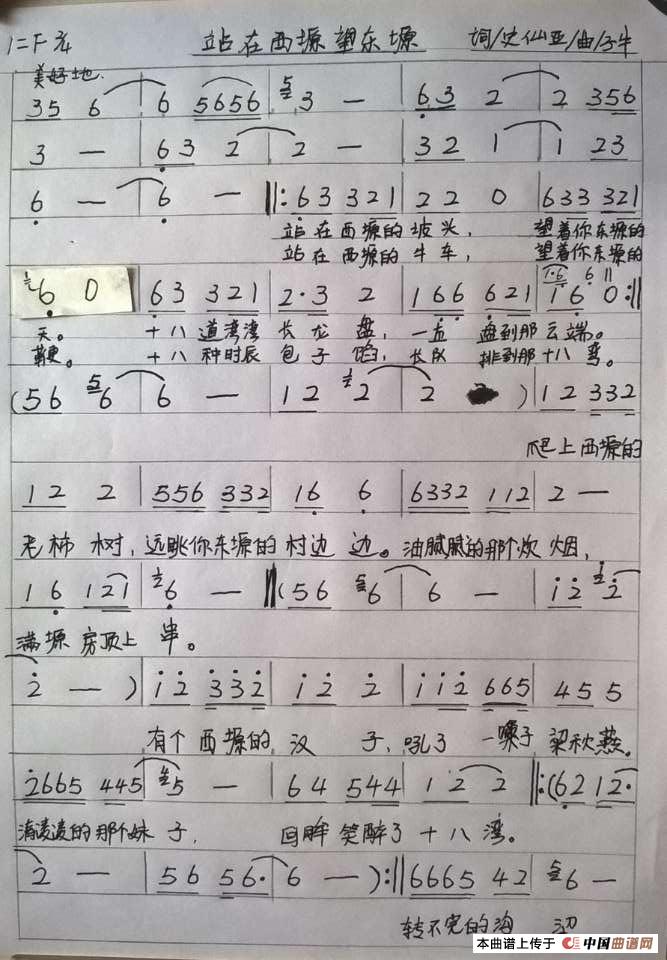 1=F 2/4 站在西塬望东塬 词/史仙亚/曲/子牛
美好地.
35 6 | 6 5656 | 3 — | 63 2 | 2 356
3 — | 63 2 | 2 — | 32 1 | 1 23
6 — | 6 — ‖: 63 3321 | 22 0 | 633 321
站在西塬的坡头, 望着你东塬的
站在西塬的牛车, 望着你东塬的
6 0 | 63 321 | 2·3 2 | 166 621 | 16 0 :‖
天。 十八道湾湾 长龙盘, 一直 盘到那云端。
鞭。 十八种时辰 包子馅, 长队 排到那十八弯。
(56 6 | 6 — | 12 2 | 2 ) | 12 332
爬上西塬的
12 2 | 556 332 | 16 6 | 6332 112 | 2 —
老柿树, 远眺你东塬的村边边。油腻腻的那个炊烟,
16 121 | 6 — ‖ (56 6 | 6 — | 12 2
满塬房顶上串。
2 — ) | 12 332 | 12 2 | 112 665 | 45 5
有个西塬的汉子, 吼了一嗓子梁秋燕。
2665 445 | 5 — | 64 544 | 12 2 ‖: (62 12·
清凌凌的那个妹子, 回眸笑醉了十八湾。
2 — | 56 56· | 6 — ) :‖ 6665 42 | 6 —
转不完的沟
本曲谱上传于 中国曲谱网